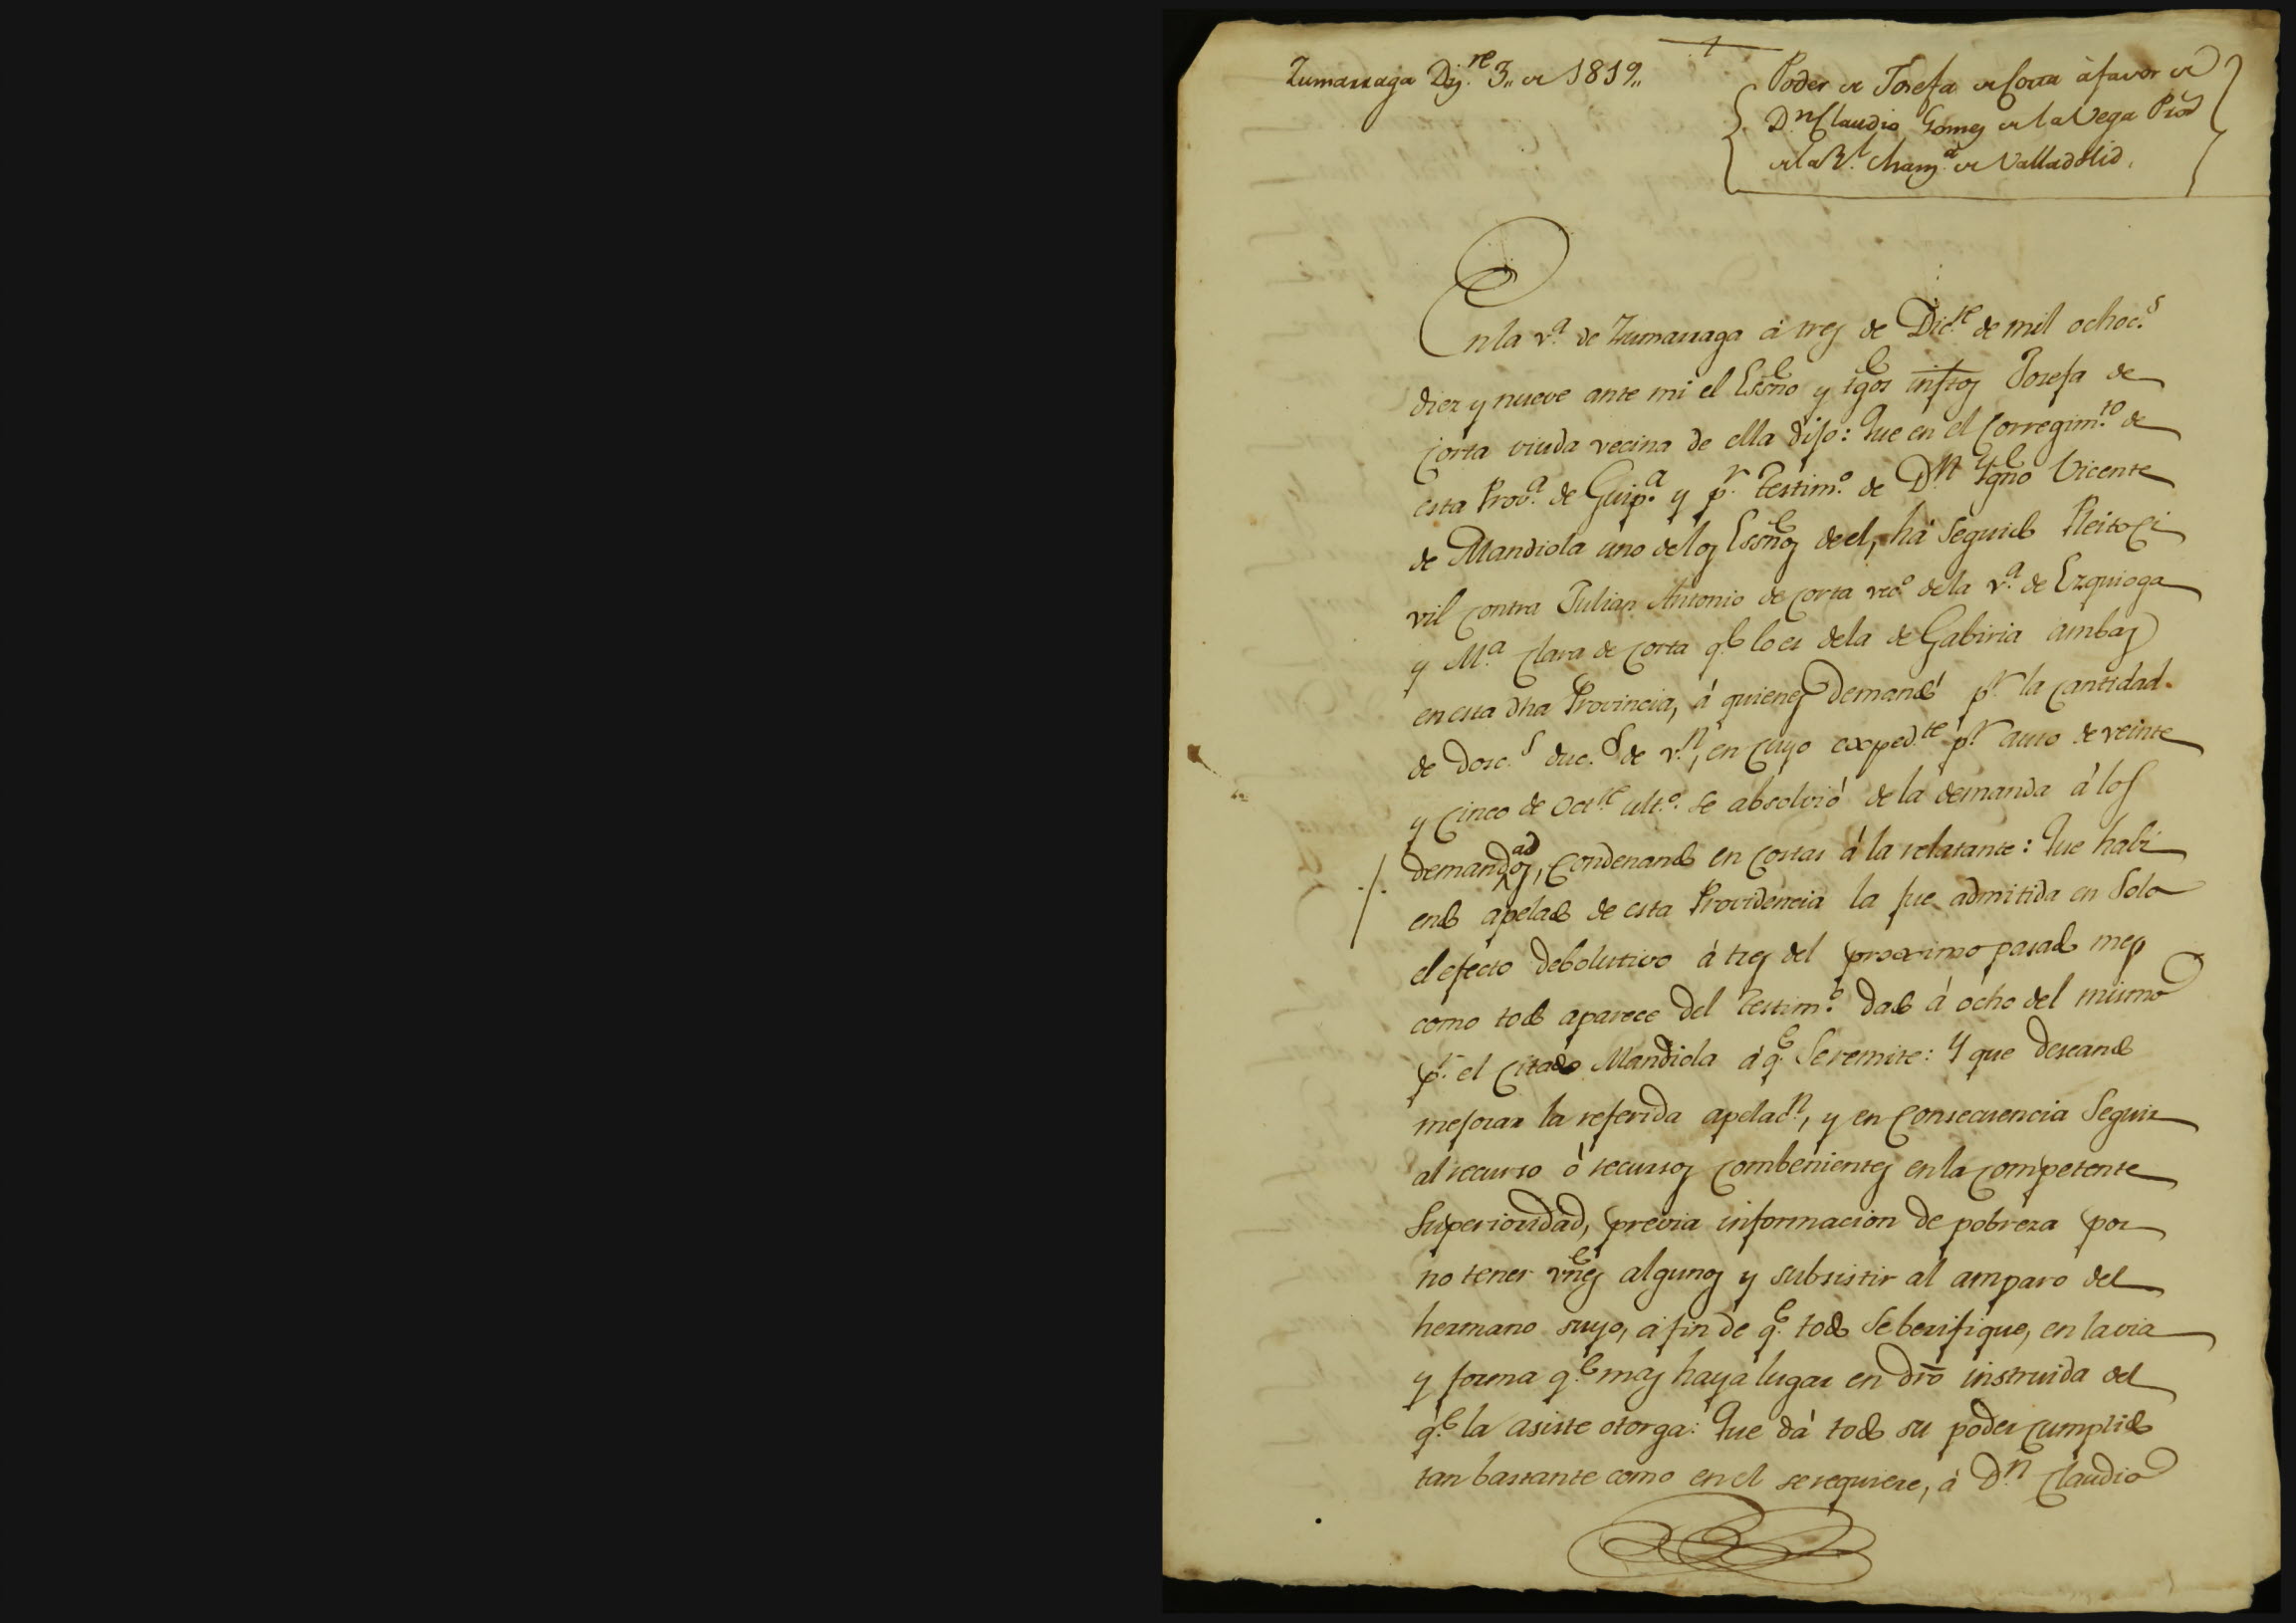 Zumarraga Diz.re 3,, de 1819,,
Poder de Josefa de Corta à favor de
D.n Claudio Gomez de la Vega Pror
de la Rl. Chanz.a de Valladolid.
En la v.a de Zumarraga á tres de Dic.re de mil ochoc.s
diez y nueve ante mi el Essno y tgos infros Josefa de
Corta viuda vecina de ella dijo: Que en el Corregim.to de
esta Prov.a de Guip.a y p.r testim.o de D.n Ygno Vicente
de Mandiola uno de los Essnos de el, há seguido Pleito Ci
vil contra Julian Antonio de Corta vec.o de la v.a de Ezquioga
y M.a Clara de Corta q.e lo es dela de Gabiria ambas
en esta dha Provincia, á quienes demandó p.r la cantidad
de dosc.s duc.s de v.n, en cuyo exped.te p.r auto de veinte
y cinco de Oct.re ult.o se absolvió de la demanda á los
demandados, condenando en costas á la relatante: Que habi
endo apelado de esta Providencia la fue admitida en solo
el efecto debolutivo á tres del proximo pasado mes
como todo aparece del testim.o dado á ocho del mismo
p.r el citado Mandiola á q.e se remite: Y que deseando
mejorar la referida apelac.n, y en consecuencia seguir
al recurso ó recursos combenientes en la competente
Superioridad, previa informacion de pobreza por
no tener vnes algunos y subsistir al amparo del
hermano suyo, á fin de q.e todo se berifique, en la via
y forma q.e mas haya lugar en dro instruida del
q.e la asiste otorga: Que dá todo su poder cumplido
tan bastante como en el se requiere, á D.n Claudio